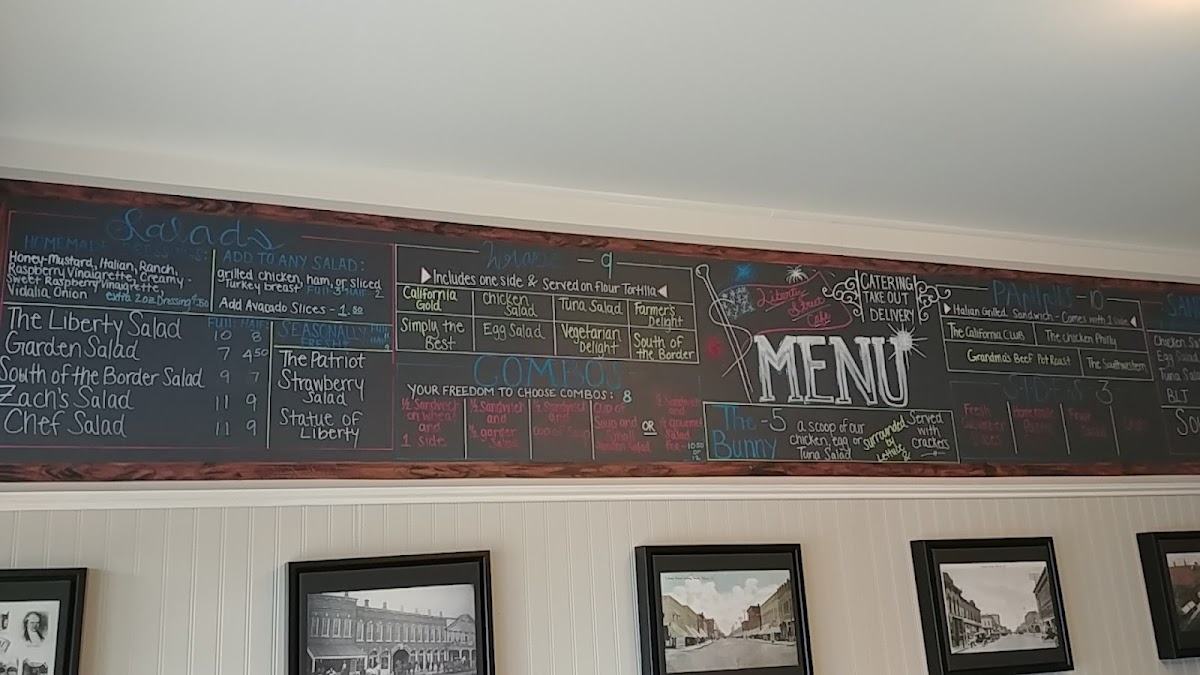 Salads
HOMEMADE DRESSINGS:
Honey-Mustard, Italian, Ranch,
Raspberry Vinaigrette, Creamy-
Sweet Raspberry Vinaigrette,
Vidalia Onion
extra 2oz Dressing $.50
ADD TO ANY SALAD:
grilled chicken, ham, or sliced
Turkey breast FULL-3 HALF-2
Add Avacado Slices - 1.50
FULL HALF
The Liberty Salad 10 8
Garden Salad 7 4.50
South of the Border Salad 9 7
Zach's Salad 11 9
Chef Salad 11 9
SEASONALLY FRESH
The Patriot
Strawberry
Salad
Statue of
Liberty
Wraps - 9
Includes one side & Served on flour Tortilla
California Gold
Chicken Salad
Tuna Salad
Farmer's Delight
Simply the Best
Egg Salad
Vegetarian Delight
South of the Border
COMBOS
YOUR FREEDOM TO CHOOSE COMBOS: 8
½ Sandwich on wheat and 1 side
½ Sandwich and ½ garden Salad
½ Sandwich and cup of Soup
Cup of Soup and Small Garden Salad
OR
½ Sandwich and ½ gourmet Salad
Liberty Street Cafe
MENU
CATERING
TAKE OUT
DELIVERY
The Bunny -5
a scoop of our
chicken, egg or
Tuna Salad
Surrounded by Lettuce &
Served with crackers
PANINIS - 10
Italian Grilled Sandwich - Comes with 1 side
The California Club
The Chicken Philly
Grandma's Beef Pot Roast
The Southwestern
SIDES 3
Fresh Cucumber Slices
Homemade
Fruit Salad
Chicken Sal
Egg Sala
Tuna Sal
BLT